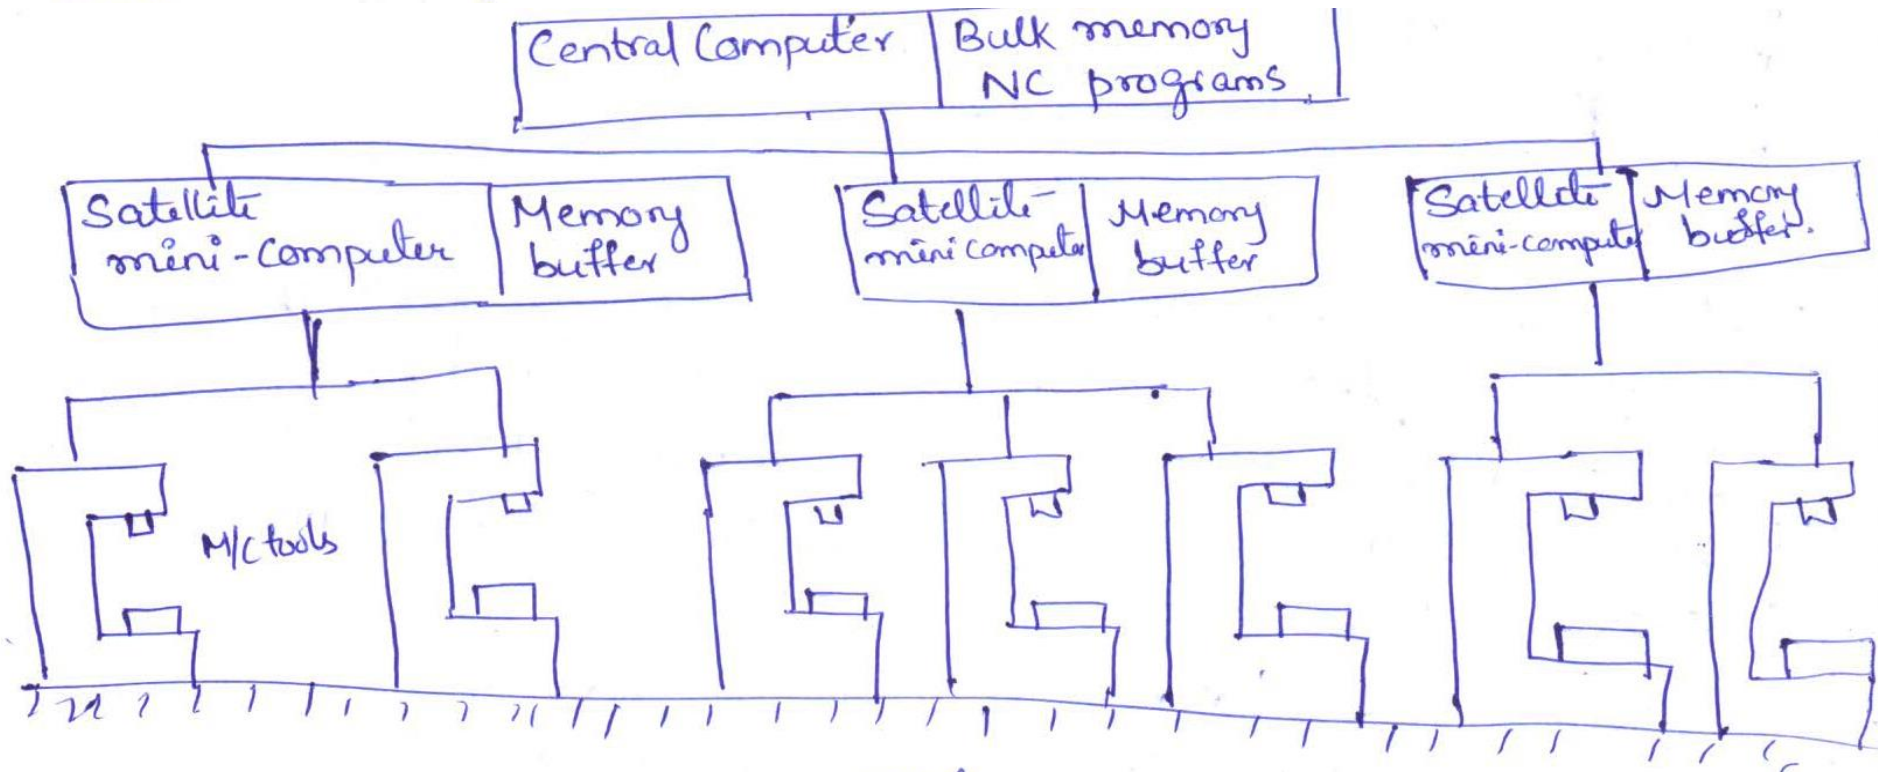 Central Computer
Bulk memory
NC programs.
Satellite
mini-computer
Memory
buffer
Satellite
mini computer
Memory
buffer
Satellite
mini-computer
Memory
buffer.
M/C tools